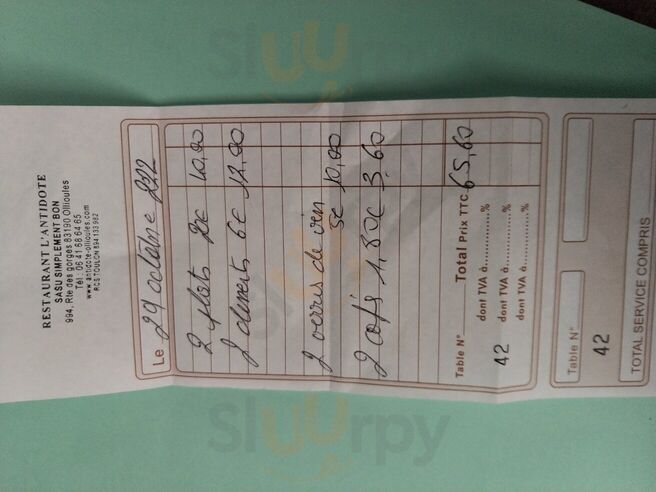 RESTAURANT L'ANTIDOTE
SASU SIMPLEMENT BON
994, Rte des gorges 83190 Ollioules
Tél : 06 41 68 64 65
www.antidote-ollioules.com
RCS TOULON 894 133 982
Le 29 octobre 2022
2 plats 20€ 40,00
2 desserts 6€ 12,00
2 verres de vin
5€ 10,00
2 cafés 1,80€ 3,60
Table N° Total Prix TTC 65,60
dont TVA à ............. %
42 dont TVA à ............. %
dont TVA à ............. %
Table N°
42
TOTAL SERVICE COMPRIS
Sluurpy
Sluurpy